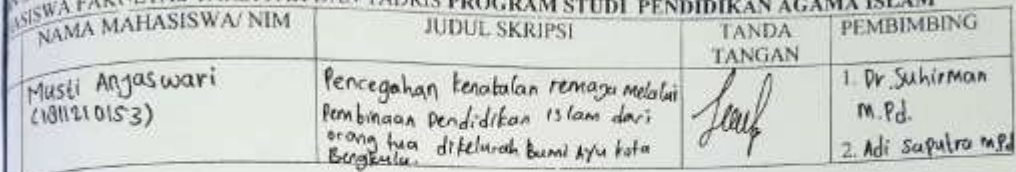 PROGRAM STUDI PENDIDIKAN AGAMA ISLAM
NAMA MAHASISWA/ NIM
JUDUL SKRIPSI
TANDA TANGAN
PEMBIMBING
Musti Anjaswari
(1811210153)
Pencegahan kenakalan remaja melalui
Pembinaan Pendidikan Islam dari
orang tua dikelurah Bumi Ayu kota
Bengkulu.
1. Dr. Suhirman
M.Pd.
2. Adi Saputra M.Pd